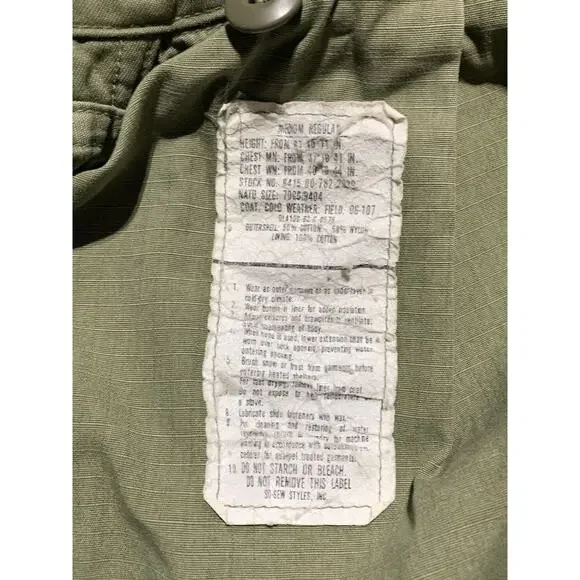 MEDIUM REGULAR
HEIGHT: FROM 67 TO 71 IN.
CHEST MN: FROM 37 TO 41 IN.
CHEST WN: FROM
STOCK NO. 8415-00-782-
NATO SIZE: 7080/9404
COAT, COLD WEATHER: FIELD, OG-107
OUTERSHELL: 50% COTTON, 50% NYLON
LINING: 100% COTTON
1. Wear as outer garment or as underlayer in
cold-dry climate.
2. Wear button in liner for added insulation.
3. Adjust closures and drawcords to ventilate,
avoid overheating of body.
4. When hood is used, lower extension shall be
worn over neck opening, preventing water
entering opening.
5. Brush snow or frost from garments before
entering heated shelters.
For fast drying, remove liner from coat.
Do not expose to high temperature
a stove.
8. Lubricate slide fasteners with wax.
9. For cleaning and restoring of water
for machine
washing in accordance with
for quarpel treated garments.
10. DO NOT STARCH OR BLEACH.
DO NOT REMOVE THIS LABEL
SO-SEW STYLES, INC.